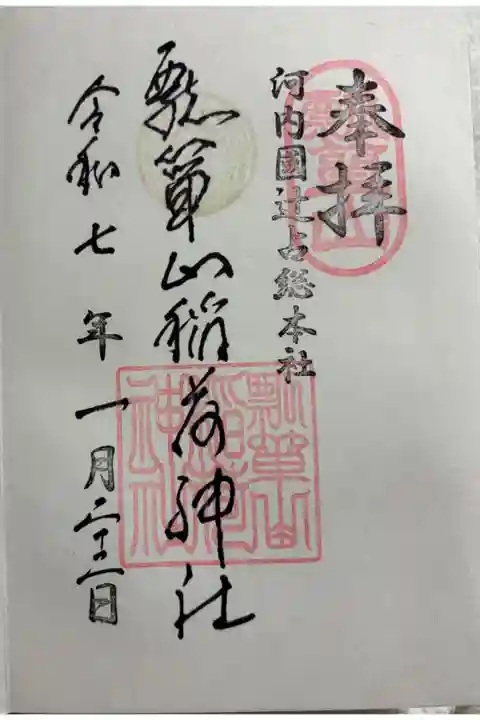 奉拝
河内國辻占総本社
瓢箪山稲荷神社
令和七年一月二十二日
瓢箪山
瓢箪山
稲荷
神社